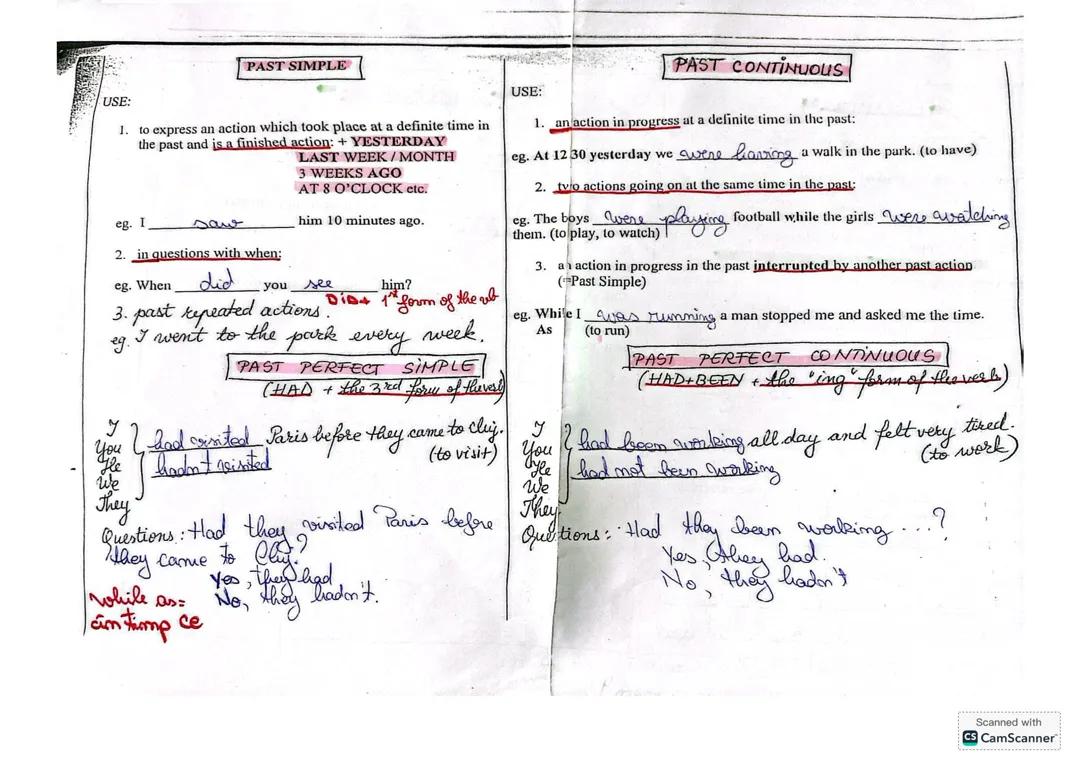 PAST SIMPLE
USE:
1. to express an action which took place at a definite time in
the past and is a finished action: + YESTERDAY
LAST WEEK / MONTH
3 WEEKS AGO
AT 8 O'CLOCK etc.
eg. I saw him 10 minutes ago.
2. in questions with when:
eg. When did you see him?
DID + 1st form of the vb
3. past repeated actions.
eg. I went to the park every week.
PAST PERFECT SIMPLE
(HAD + the 3rd form of the verb)
I
You
He
We
They
had visited Paris before they came to Cluj.
(to visit)
hadn't visited
Questions: Had they visited Paris before
they came to Cluj?
Yes, they had
No, they hadn't.
while as =
în timp ce
PAST CONTINUOUS
USE:
1. an action in progress at a definite time in the past:
eg. At 12 30 yesterday we were having a walk in the park. (to have)
2. two actions going on at the same time in the past:
eg. The boys were playing football while the girls were watching
them. (to play, to watch)
3. an action in progress in the past interrupted by another past action
(=Past Simple)
eg. While I was running a man stopped me and asked me the time.
As (to run)
PAST PERFECT CONTINUOUS
(HAD+BEEN + the "ing" form of the verb)
I
You
He
We
They
had been working all day and felt very tired.
(to work)
had not been working
Questions: Had they been working ...?
Yes, they had.
No, they hadn't
Scanned with
CS CamScanner